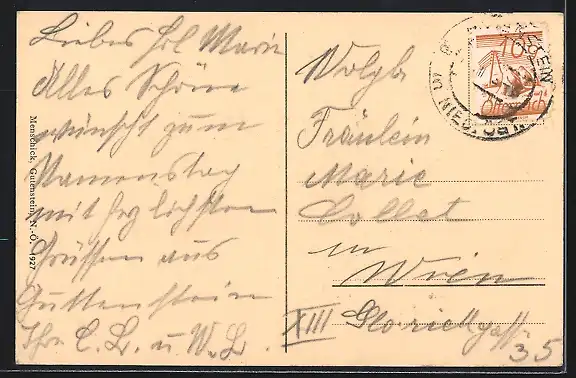 Liebes Frl Marie
Alles Schöne
wünscht zum
Namenstag
mit herzlichsten
Grüssen aus
Guttenstein
Ihr C. L. u W. L.
Menschick, Gutenstein, N.-Ö. 1927
Wolgb.
Fräulein
Marie
Collet
in
Wien
XIII Gloriettegasse
35